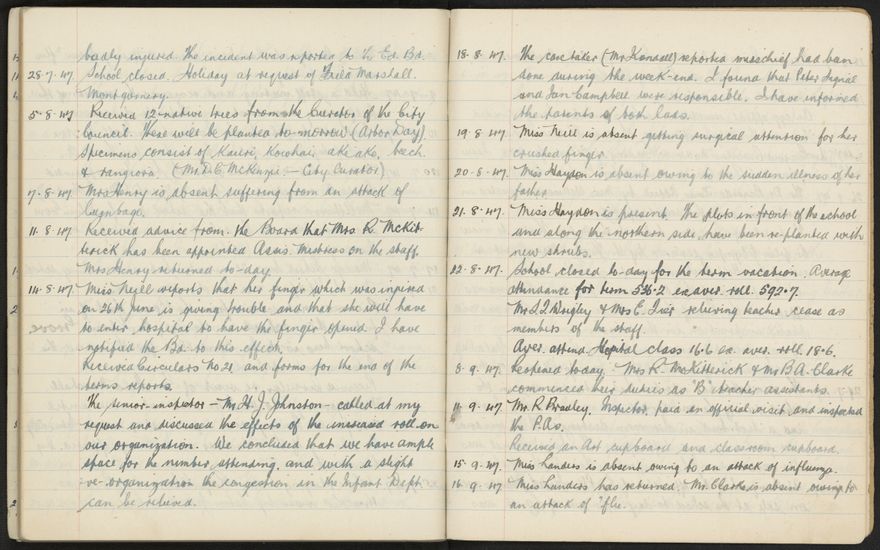 badly injured. The incident was reported to the Ed. Bd.
28.7.47 School closed. Holiday at request of Field Marshall.
Montgomery.
5.8.47 Received 12 native trees from the Curator of the City
Council. These will be planted to-morrow (Arbor Day).
Specimens consist of Kauri, Kowhai, ake ake, beech
& rangiora (Mr. D. C. McKenzie - City Curator)
7.8.47 Mrs Henry is absent suffering from an attack of
lumbago.
11.8.47 Received advice from the Board that Mrs. R. McKit-
terick has been appointed Assis. Mistress on the staff.
Mrs Henry returned to-day.
14.8.47. Miss Neill reports that her finger which was injured
on 26th June is giving trouble and that she will have
to enter hospital to have the finger opened. I have
notified the Bd. to this effect.
Received Circulars No. 21, and forms for the end of the
terms reports.
The senior-inspector - Mr. H. J. Johnston - called at my
request and discussed the effects of the increased roll on
our organization. We concluded that we have ample
space for the number attending, and with a slight
re-organization the congestion in the Infant Dept
can be relieved.
18.8.47. The caretaker (Mr Kendall) reported mischief had been
done during the week-end. I found that Peter
and Ian Campbell were responsible. I have informed
the parents of both lads.
19.8.47 Miss Neill is absent getting surgical attention for her
crushed finger.
20.8.47. Miss Haydon is absent owing to the sudden illness of her
father.
21.8.47. Miss Haydon is present. The plots in front of the school
and along the northern side, have been re-planted with
new shrubs.
22.8.47. School closed to-day for the term vacation. Average
attendance for term 536.2 ex aver. roll. 592.7.
Mr L. J. Wrigley & Mrs E. relieving teacher cease as
members of the staff.
Aver. attend. Hospital class 16.6 ex. aver. roll 18.6.
8.9.47. Reopened today. Mrs R. McKitterick & Mr B. A. Clarke
commenced their duties as "B" teacher assistants.
11.9.47. Mr. R Bradley, Inspector, paid an official visit and inspected
the P.As.
Received an Art cupboard and classroom cupboard.
15.9.47. Miss Landers is absent owing to an attack of influenza.
16.9.47 Miss Landers has returned. Mr. Clarke is absent owing to
an attack of 'flu.